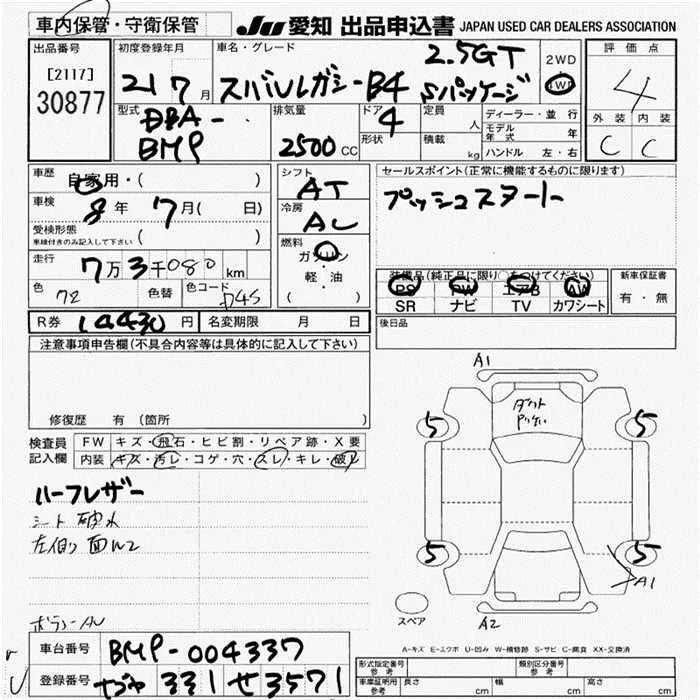 車内保管・守衛保管
JU 愛知 出品申込書 JAPAN USED CAR DEALERS ASSOCIATION
出品番号
[2117]
30877
初度登録年月
21 7 月
車名・グレード
スバルレガシーB4
2.5GT
Sパッケージ
2WD
4WD
評価点
4
外装 内装
C C
型式
DBA-
BMP
排気量
2500 CC
ドア 4
形状
定員 人
積載 kg
ディーラー・並行
モデル年式 年
ハンドル 左・右
車歴 自家用・( )
車検 8 年 7 月( 日)
受検形態
車検付きのみ記入して下さい ( )
走行 7万3千080 km
色 72 色替 色コード D4S
シフト
AT
冷房
AC
燃料
ガソリン
・
軽・油
( )
セールスポイント(正常に機能するものに限ります)
プッシュスタート
装備品(純正品に限り○をつけてください)
PS PW エアB AW
SR ナビ TV カワシート
新車保証書
有・無
R券 14430 円 名変期限 月 日
後日品
注意事項申告欄(不具合内容等は具体的に記入して下さい)
修復歴 有 (箇所 )
検査員記入欄
FW キズ・飛石・ヒビ割・リペア跡・X要
内装 キズ・汚レ・コゲ・穴・スレ・キレ・破レ
ハーフレザー
シート 破れ
A1
5 5
5 5
A1
スペア
A2
A-キズ E-エクボ U-凹み W-補修跡 S-サビ C-腐食 XX-交換済
車台番号 BMP-004337
登録番号 331 せ 3571
形式指定番号 参考
類別区分番号 参考
車庫証明用 参考 長さ cm 幅 cm 高さ cm